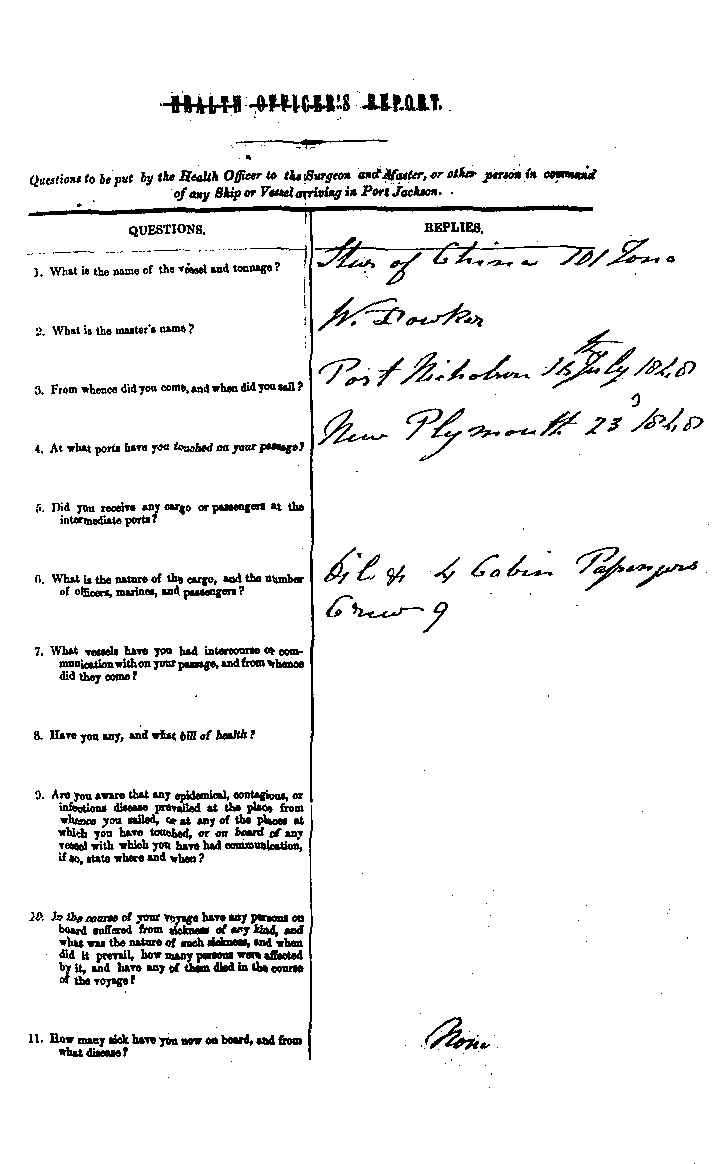 HEALTH OFFICER'S REPORT.
Questions to be put by the Health Officer to the Surgeon and Master, or other person in command
of any Ship or Vessel arriving in Port Jackson.
QUESTIONS.
REPLIES.
1. What is the name of the vessel and tonnage?
Star of China 101 Tons
2. What is the master's name?
W.
3. From whence did you come, and when did you sail?
Port Nicholson July 1848
4. At what ports have you touched on your passage?
New Plymouth 23 1848
5. Did you receive any cargo or passengers at the
intermediate ports?
6. What is the nature of the cargo, and the number
of officers, marines, and passengers?
Oil & 4 Cabin Passengers
Crew 9
7. What vessels have you had intercourse or com-
munication with on your passage, and from whence
did they come?
8. Have you any, and what bill of health?
9. Are you aware that any epidemical, contagious, or
infectious disease prevailed at the place from
whence you sailed, or at any of the places at
which you have touched, or on board of any
vessel with which you have had communication,
if so, state where and when?
10. In the course of your voyage have any persons on
board suffered from sickness of any kind, and
what was the nature of such sickness, and when
did it prevail, how many persons were affected
by it, and have any of them died in the course
of the voyage?
11. How many sick have you now on board, and from
what disease?
None